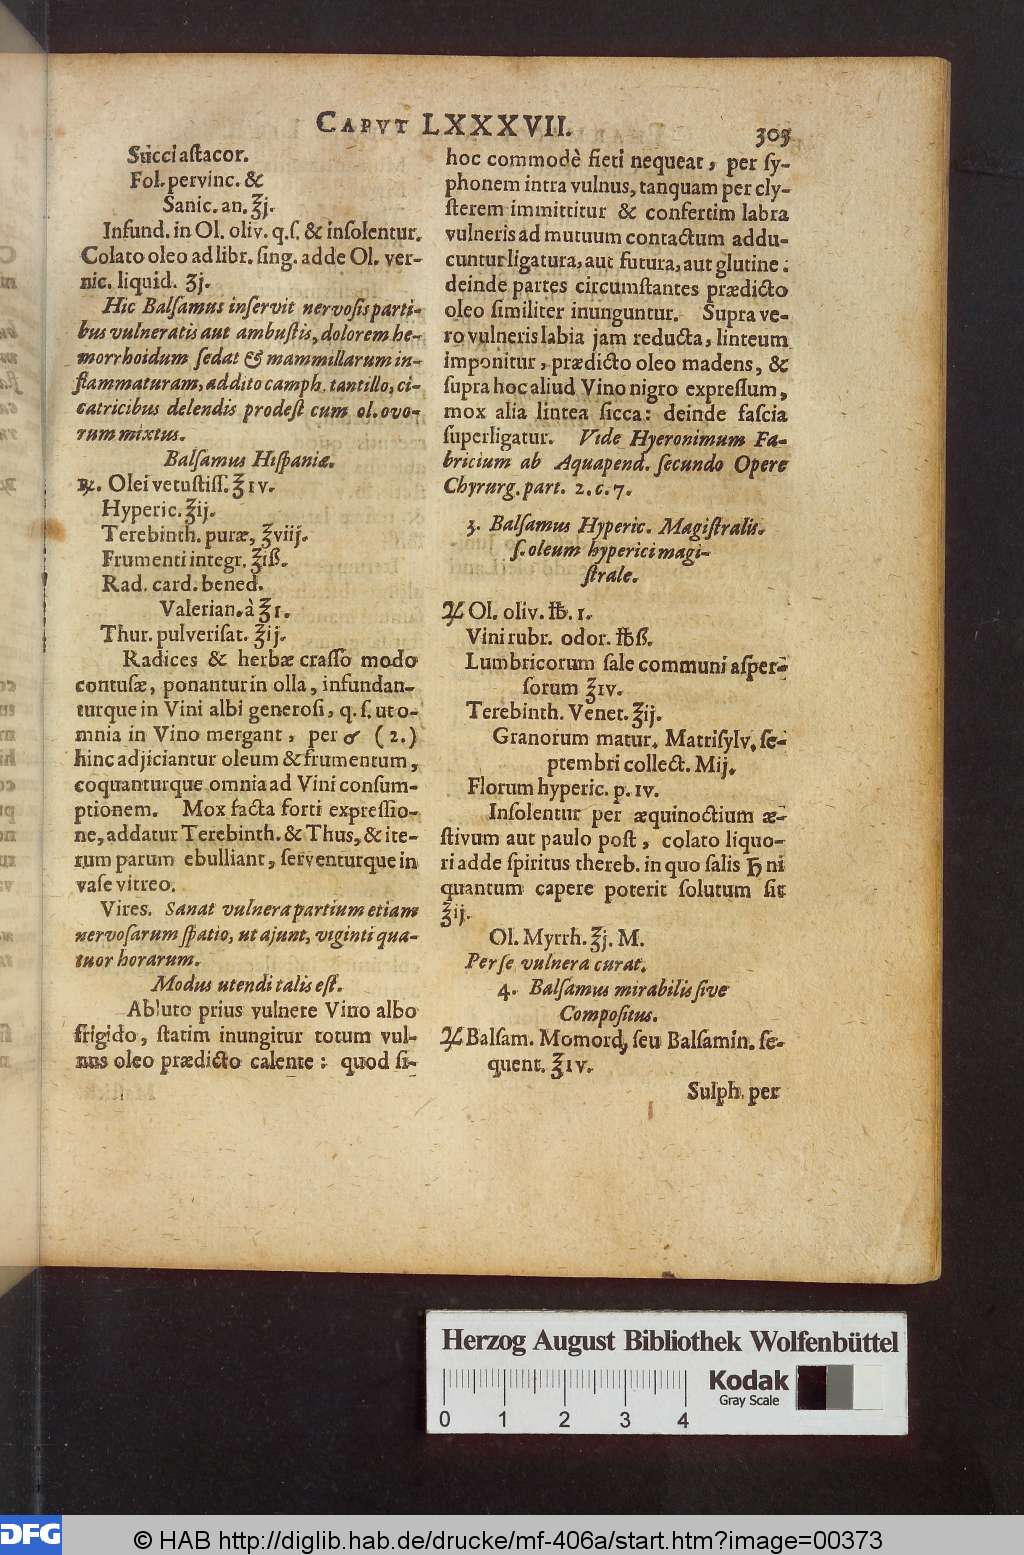 CAPVT LXXXVII.
303
Succi aſtacor.
Fol. pervinc. &
Sanic. an. ℥j.
Infund. in Ol. oliv. q.ſ. & inſolentur.
Colato oleo ad libr. ſing. adde Ol. ver-
nic. liquid. ʒj.
Hic Balſamus inſervit nervoſis parti-
bus vulneratis aut ambuſtis, dolorem he-
morrhoidum ſedat & mammillarum in-
flammaturam, addito camph. tantillo, ci-
catricibus delendis prodeſt cum ol. ovo-
rum mixtus.
Balſamus Hiſpaniæ.
℞. Olei vetuſtiſſ. ℥ıv.
Hyperic. ℥ij.
Terebinth. puræ, ℥viij.
Frumenti integr. ℥iß.
Rad. card. bened.
Valerian. à ℥ı.
Thur. pulveriſat. ℥ij.
Radices & herbæ craſſo modo
contuſæ, ponantur in olla, infundan-
turque in Vini albi generoſi, q. ſ. ut o-
mnia in Vino mergant, per ♂ (2.)
hinc adjiciantur oleum & frumentum,
coquanturque omnia ad Vini conſum-
ptionem. Mox facta forti expreſſio-
ne, addatur Terebinth. & Thus, & ite-
rum parum ebulliant, ſerventurque in
vaſe vitreo.
Vires. Sanat vulnera partium etiam
nervoſarum ſpatio, ut ajunt, viginti qua-
tuor horarum.
Modus utendi talis eſt.
Abluto prius vulnere Vino albo
frigido, ſtatim inungitur totum vul-
nus oleo prædicto calente: quod ſi-
hoc commodè fieri nequeat, per ſy-
phonem intra vulnus, tanquam per cly-
ſterem immittitur & confertim labra
vulneris ad mutuum contactum addu-
cuntur ligatura, aut ſutura, aut glutine:
deinde partes circumſtantes prædicto
oleo ſimiliter inunguntur. Supra ve-
ro vulneris labia jam reducta, linteum
imponitur, prædicto oleo madens, &
ſupra hoc aliud Vino nigro expreſſum,
mox alia lintea ſicca: deinde faſcia
ſuperligatur. Vide Hyeronimum Fa-
bricium ab Aquapend. ſecundo Opere
Chyrurg. part. 2. c. 7.
3. Balſamus Hyperic. Magiſtralis.
ſ. oleum hyperici magi-
ſtrale.
℞ Ol. oliv. ℔. ı.
Vini rubr. odor. ℔ß.
Lumbricorum ſale communi aſper-
ſorum ℥ıv.
Terebinth. Venet. ℥ij.
Granorum matur. Matriſylv. ſe-
ptembri collect. Mij.
Florum hyperic. p. ıv.
Inſolentur per æquinoctium æ-
ſtivum aut paulo poſt, colato liquo-
ri adde ſpiritus thereb. in quo ſalis ♄ ni
quantum capere poterit ſolutum ſit
℥ij.
Ol. Myrrh. ℥j. M.
Per ſe vulnera curat.
4. Balſamus mirabilis ſive
Compoſitus.
℞ Balſam. Momord, ſeu Balſamin. ſe-
quent. ℥ıv.
Sulph. per
Herzog August Bibliothek Wolfenbüttel
0 1 2 3 4
Kodak
Gray Scale
DFG
© HAB http://diglib.hab.de/drucke/mf-406a/start.htm?image=00373